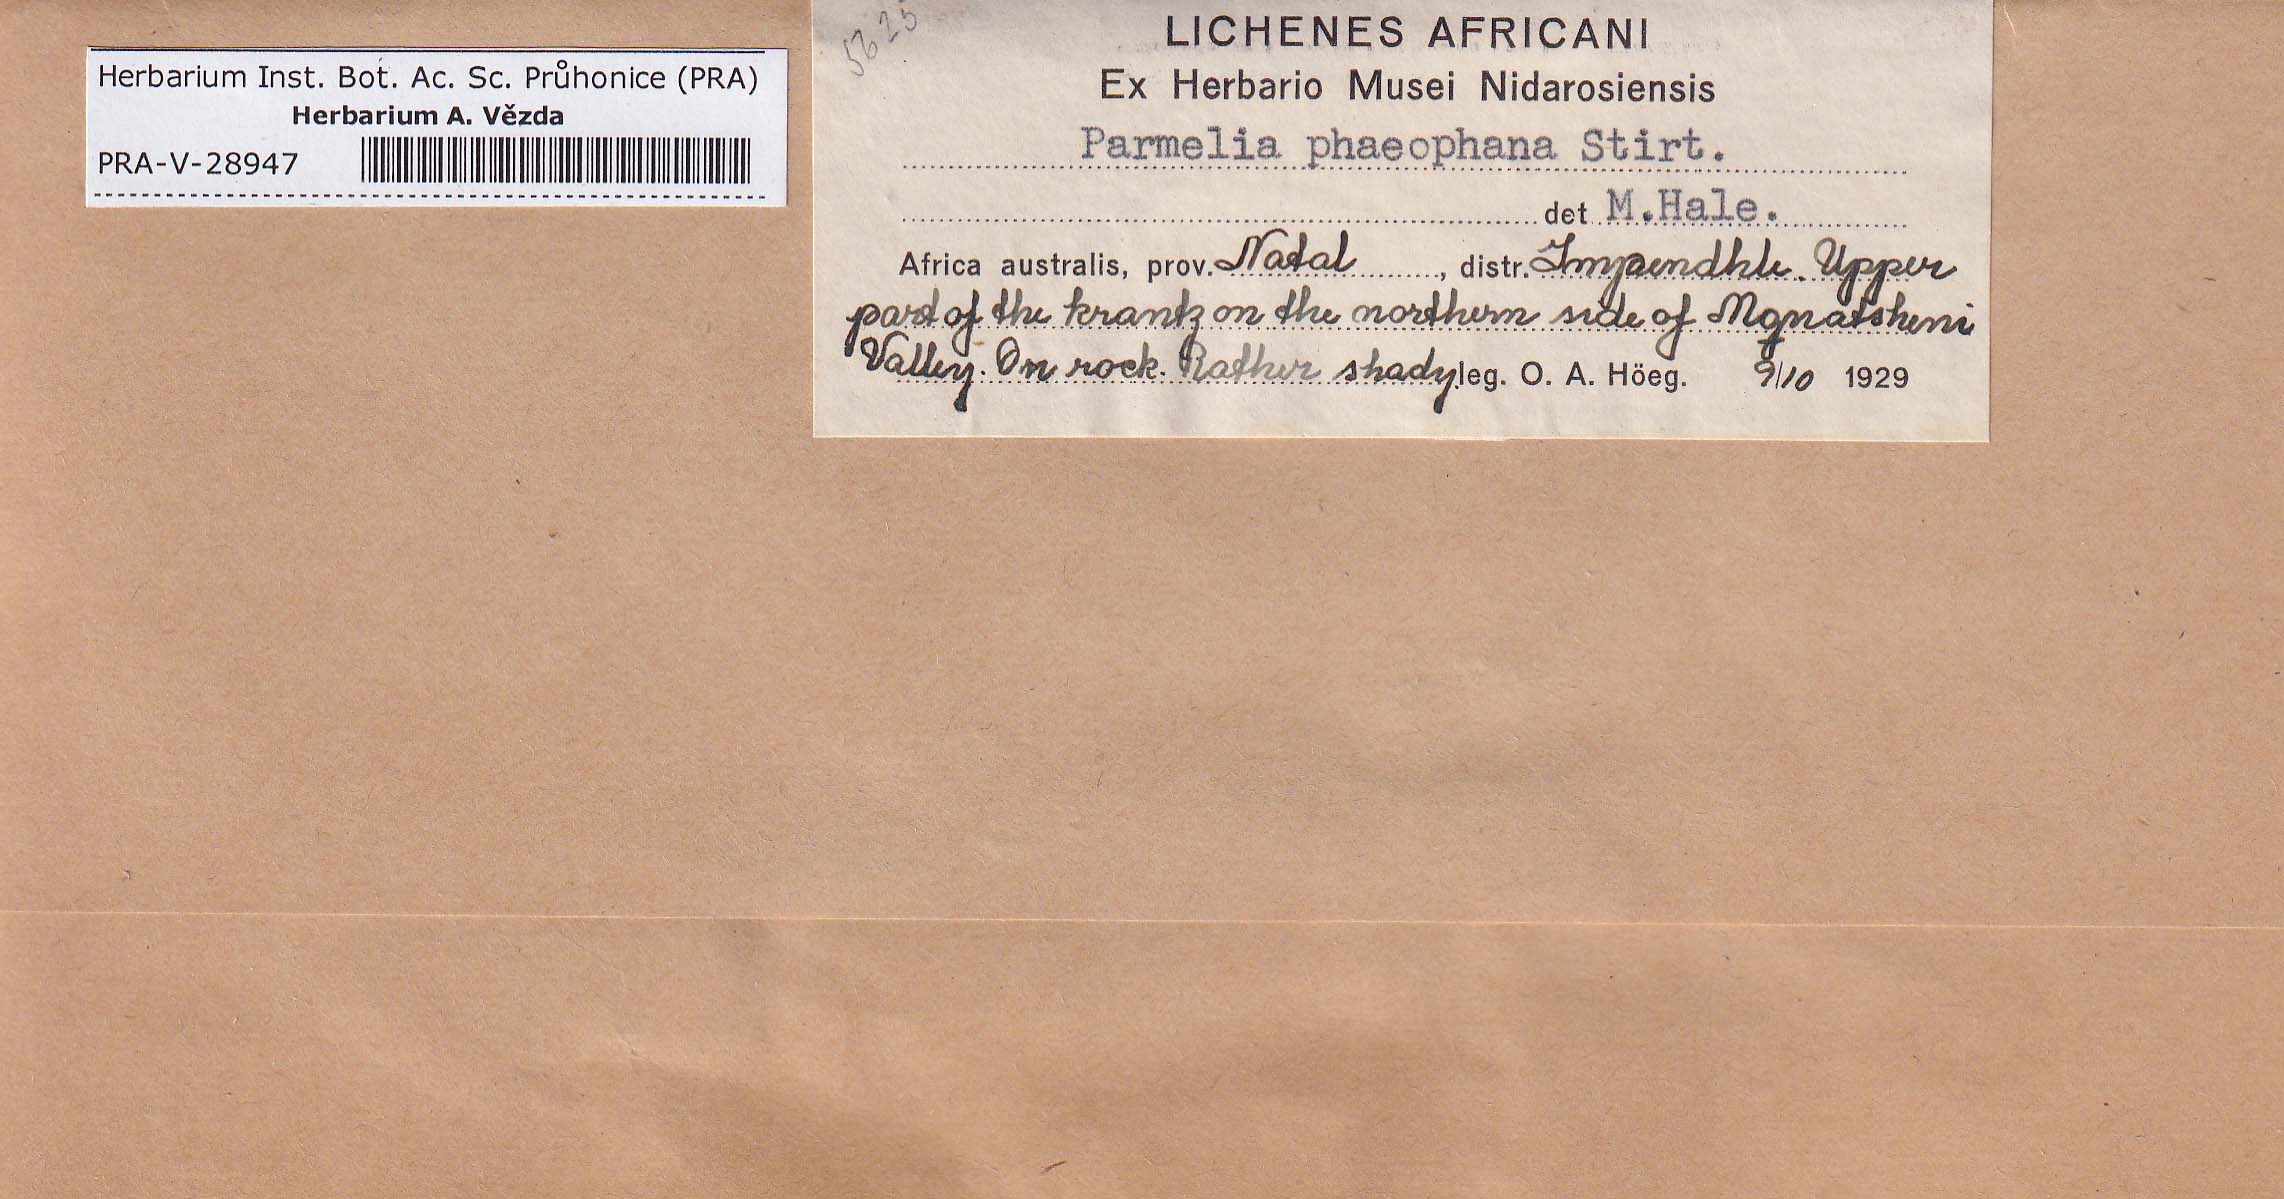 Herbarium Inst. Bot. Ac. Sc. Průhonice (PRA)
Herbarium A. Vězda
PRA-V-28947
5625
LICHENES AFRICANI
Ex Herbario Musei Nidarosiensis
Parmelia phaeophana Stirt.
det M.Hale.
Africa australis, prov. Natal, distr. Impendhle. Upper
part of the krantz on the northern side of Mqnatsheni
Valley. On rock. Rather shady. leg. O. A. Höeg. 9/10 1929